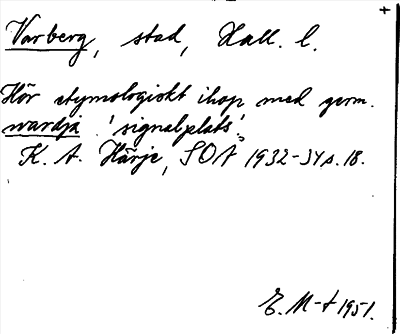 +
Varberg, stad, Hall. l.
Hör etymologiskt ihop med germ.
wardja 'signalplats'.
K. A. Härje, SOÅ 1932-34 s. 18.
E. M-t 1951.